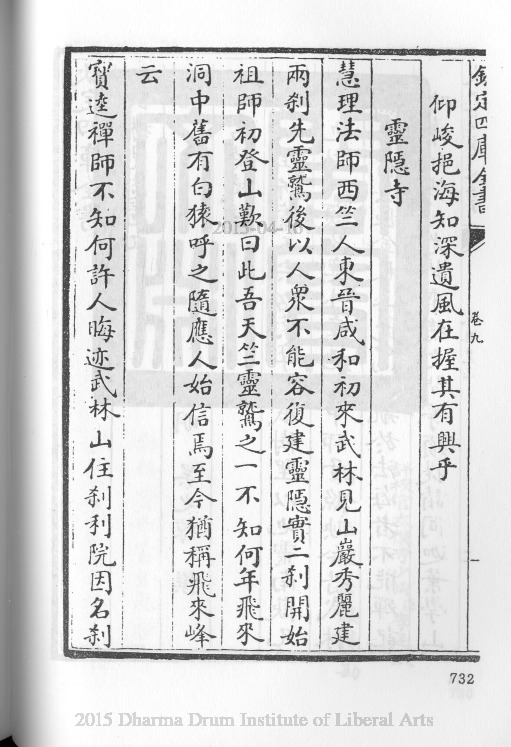 欽定四庫全書
卷九
一
仰峻挹海知深遺風在握其有興乎
靈隱寺
慧理法師西竺人東晉咸和初來武林見山巖秀麗建
兩刹先靈鷲後以人衆不能容復建靈隱實二刹開始
祖師初登山歎曰此吾天竺靈鷲之一不知何年飛來
洞中舊有白猿呼之隨應人始信焉至今猶稱飛來峰
云
寳逵禪師不知何許人晦迹武林山住刹利院因名刹
732
2015-04-10
2015 Dharma Drum Institute of Liberal Arts